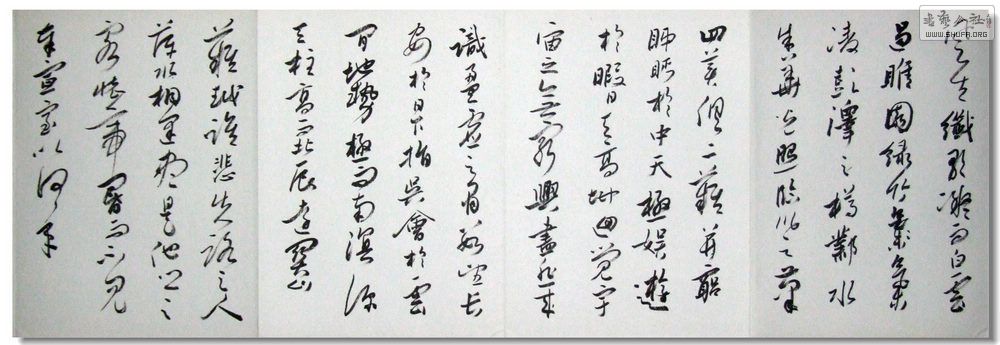 風生纖歌凝而白雲
遏睢園緑竹氣
凌彭澤之樽鄴水
朱華光照臨川之筆
四美俱二難並窮
睇眄於中天極娛遊
於暇日天高地迥覺宇
宙之無窮興盡悲來
識盈虛之有數望長
安於日下指吳會於雲
間地勢極而南溟深
天柱高而北辰遠關山
難越誰悲失路之人
萍水相逢盡是他鄉之
客懷帝閽而不見
奉宣室以何年
书艺公社
WWW.SHUFA.ORG